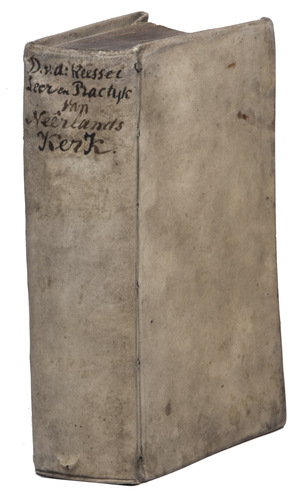 D.v.d: Kessel
Leer en Practyk
van
Neêrlands
Kerk.